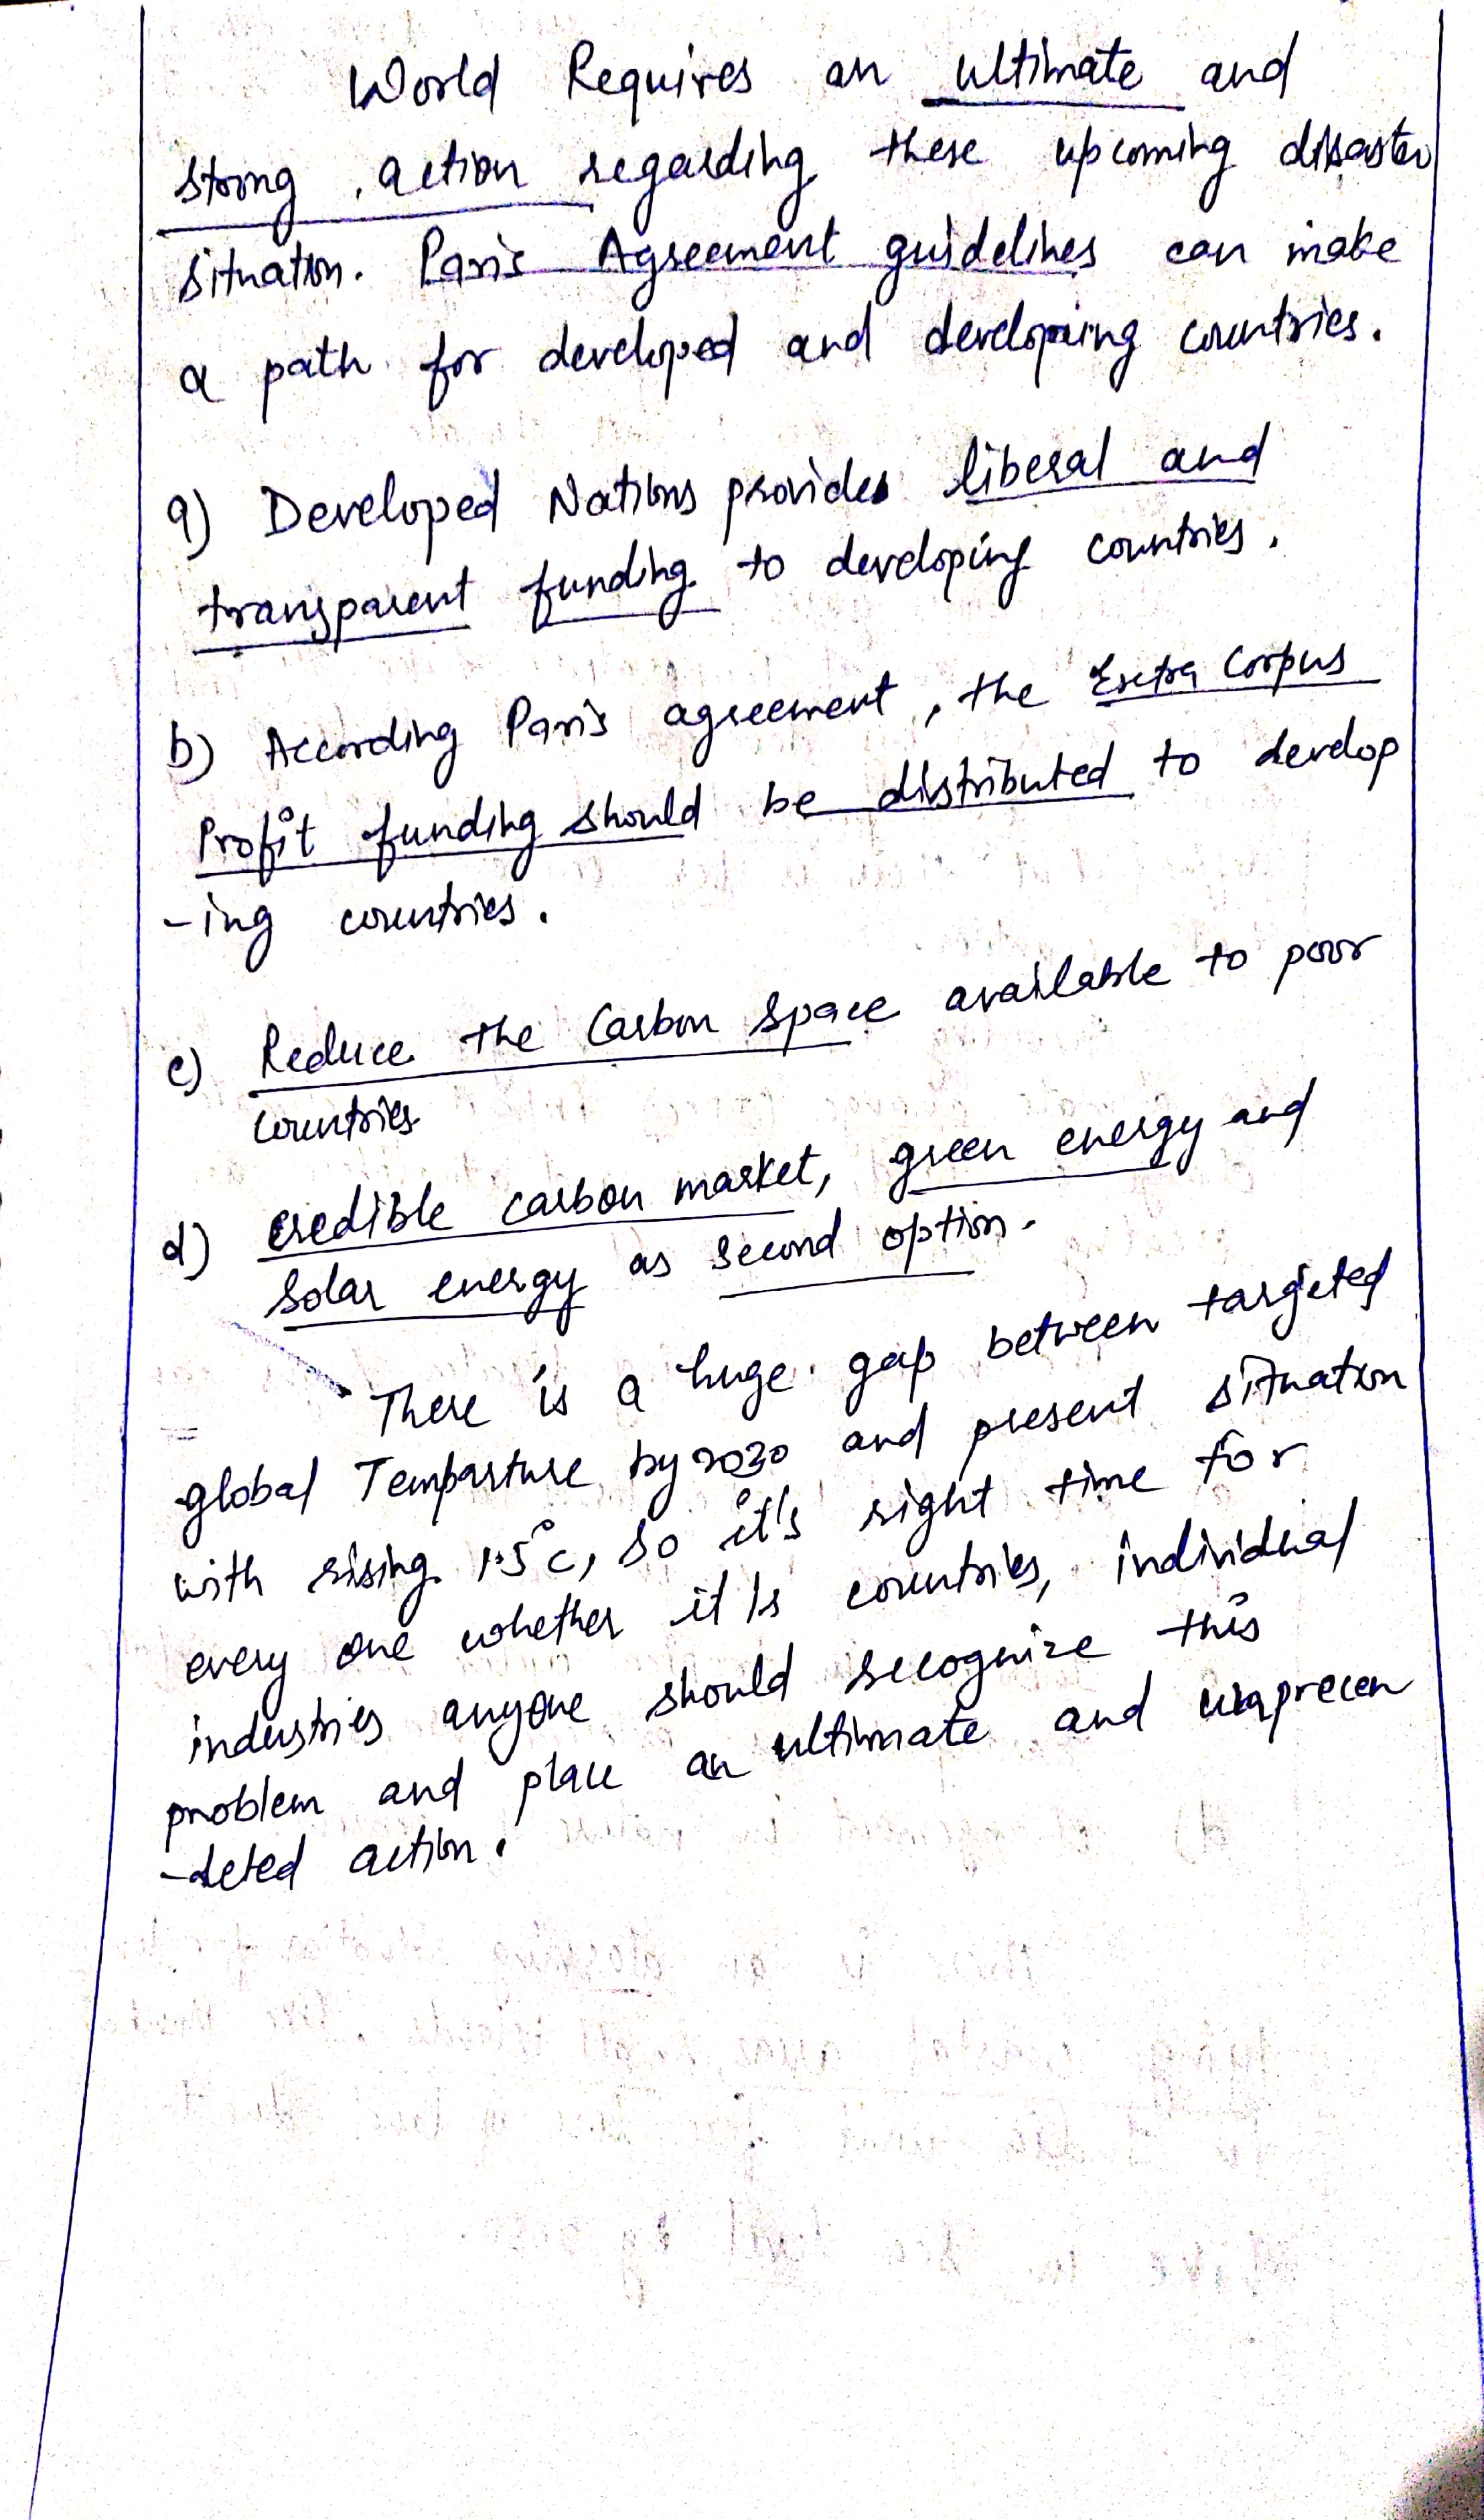 World Requires an ultimate and
strong action regarding these upcoming disaster
situation. Paris Agreement guidelines can make
a path for developed and developing countries.
a) Developed Nations provides liberal and
transparent funding to developing countries.
b) According Paris agreement, the Extra Corpus
Profit funding should be distributed to develop
-ing countries.
c) Reduce the Carbon space available to poor
countries
d) credible carbon market, green energy and
solar energy as second option.
There is a huge gap between targeted
global Temparture by 2030 and present situation
with rising 1.5°c, so it's right time for
every one whether it is countries, individual
industries anyone should recognize this
problem and place an ultimate and unprecen
-deted action.